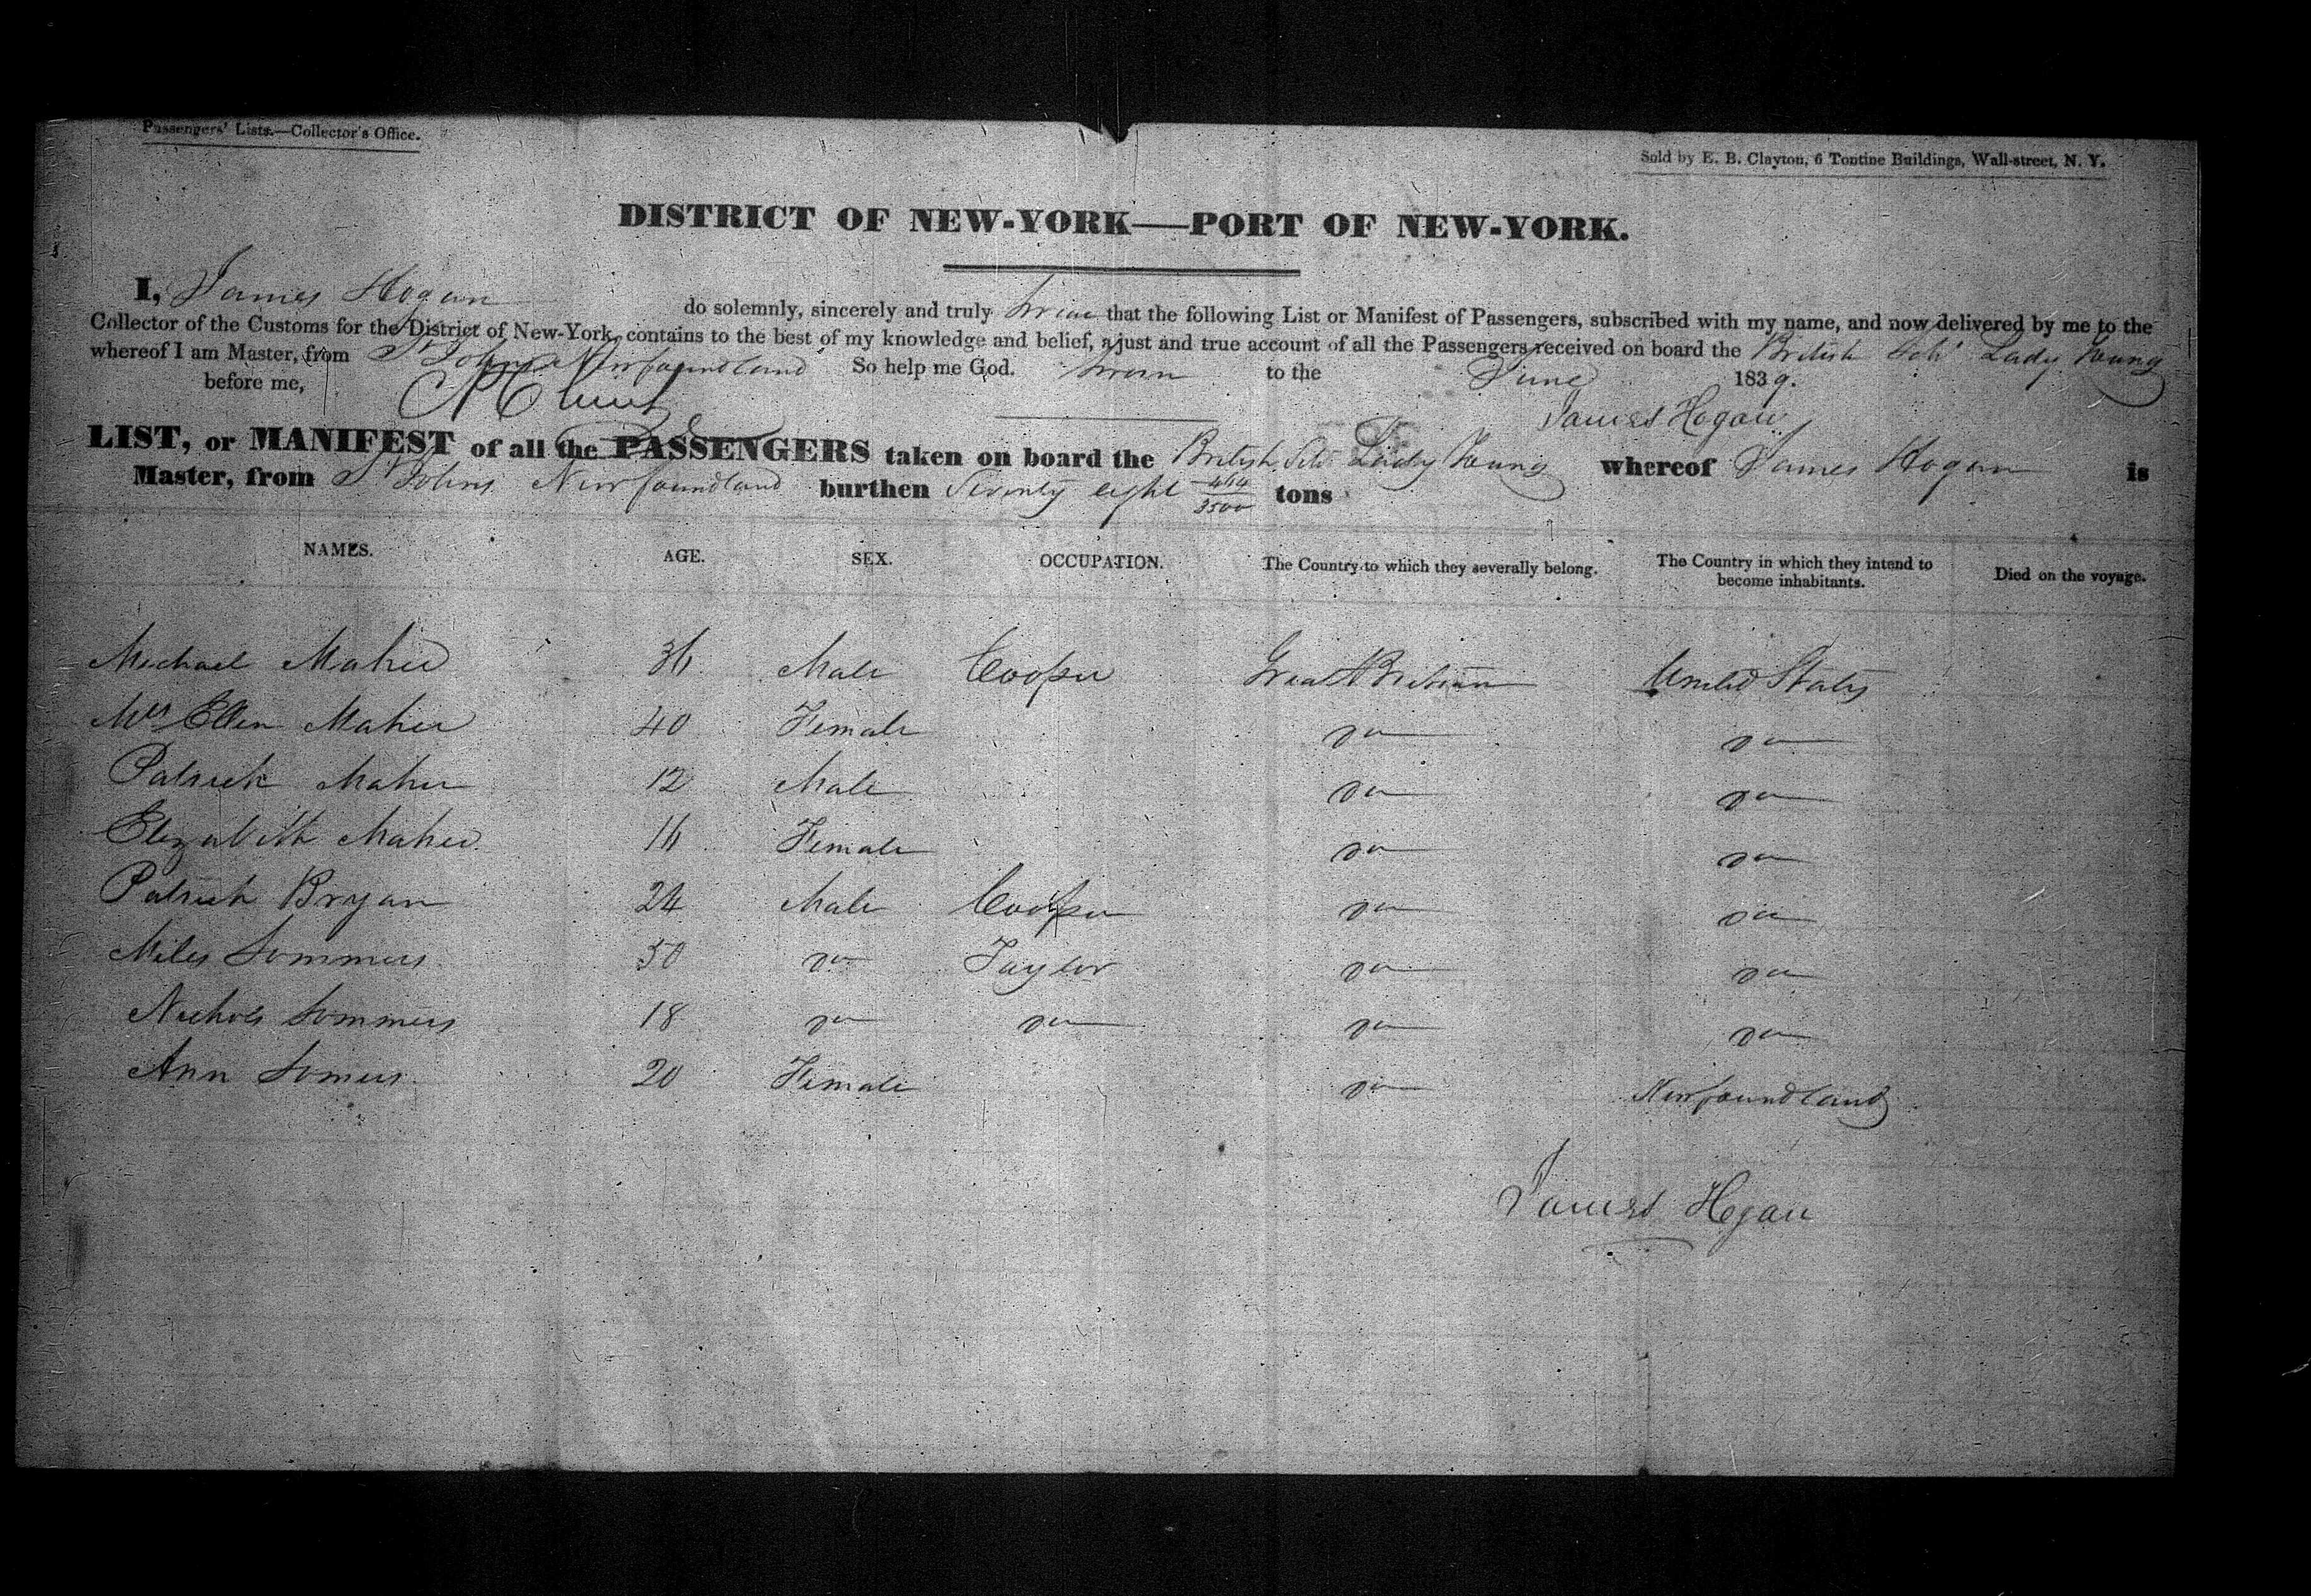 Passengers' Lists.—Collector's Office.
Sold by E. B. Clayton, 6 Tontine Buildings, Wall-street, N. Y.
DISTRICT OF NEW-YORK—PORT OF NEW-YORK.
I, James Hogan do solemnly, sincerely and truly swear that the following List or Manifest of Passengers, subscribed with my name, and now delivered by me to the
Collector of the Customs for the District of New-York, contains to the best of my knowledge and belief, a just and true account of all the Passengers received on board the British Schr Lady Young
whereof I am Master, from St Johns Newfoundland So help me God. Sworn to the June 1839.
before me,
James Hogan
LIST, or MANIFEST of all the PASSENGERS taken on board the British Schr Lady Young whereof James Hogan is
Master, from St Johns Newfoundland burthen Seventy eight 464/3500 tons
NAMES. AGE. SEX. OCCUPATION. The Country to which they severally belong. The Country in which they intend to become inhabitants. Died on the voyage.
Michael Maher 36 Male Cooper Great Britain United States
Mrs Ellen Maher 40 Female Do Do
Patrick Maher 12 Male Do Do
Elizabeth Maher 16 Female Do Do
Patrick Bryan 24 Male Cooper Do Do
Miles Sommers 50 Do Taylor Do Do
Nichols Sommers 18 Do Do Do Do
Ann Somers 20 Female Do Newfoundland
James Hogan